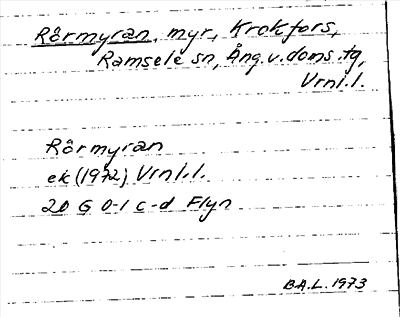 Rörmyran, myr, Krokfors,
Ramsele sn, Ång.v.doms.tg,
Vrnl.l.
Rörmyran
ek (1972) Vrnl.l.
20 G 0-1 c-d Flyn
B.A.L. 1973